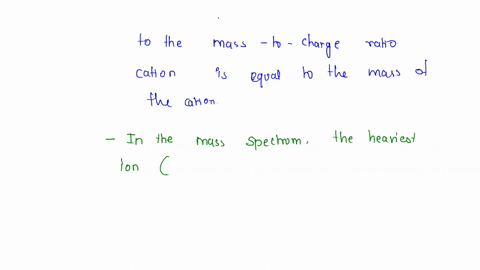 to the mass-to-charge ratio
cation is equal to the mass of
the cation.
- In the mass spectrom, the heaviest
Ion (